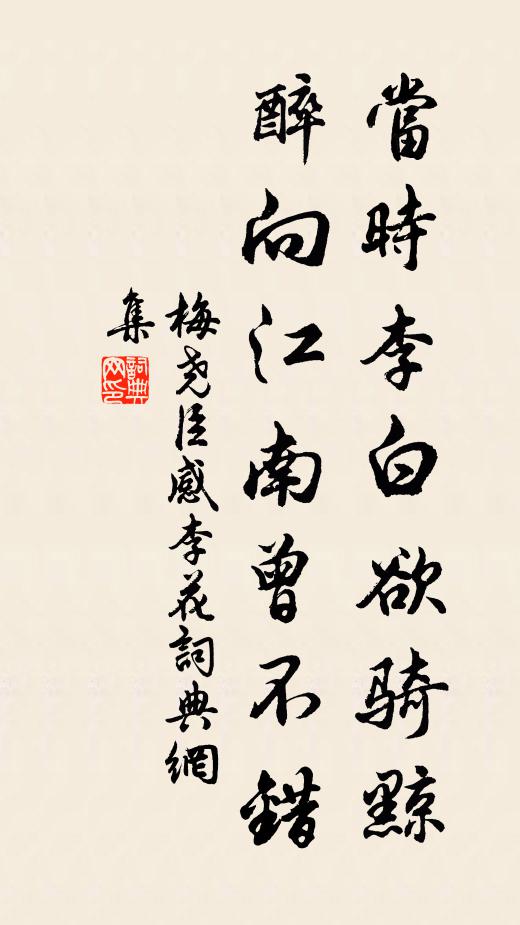 當時李白欲騎黥
醉向江南曾不錯
梅堯臣感李花詞典網
集
詞典
网印